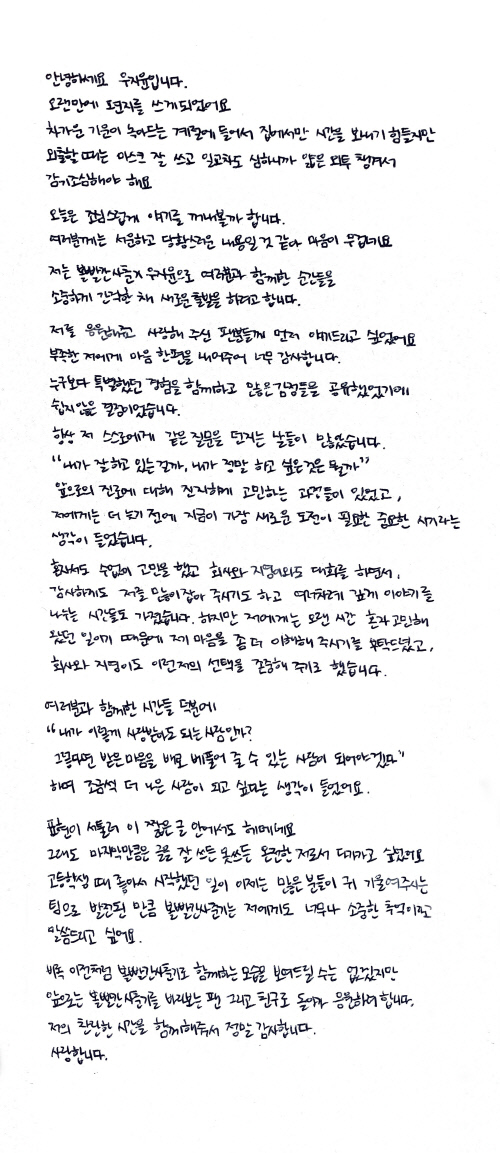 안녕하세요 우지윤입니다.
오랜만에 손편지를 쓰게되었어요
차가운 기운이 녹아드는 계절에 들어서 집에서만 시간을 보내기 힘들지만
외출할 때는 마스크 잘 쓰고 일교차도 심하니까 얇은 외투 챙겨서
감기조심해야 해요
오늘은 조심스럽게 얘기를 꺼내볼까 합니다.
여러분께는 서운하고 당황스러운 내용일 것 같아 마음이 무겁네요
저는 볼빨간사춘기 우지윤으로 여러분과 함께한 순간들을
소중하게 간직한 채 새로운 출발을 하려고 합니다.
저를 응원해주고 사랑해 주신 팬분들께 먼저 얘기드리고 싶었어요
부족한 저에게 마음 한편을 내어주어 너무 감사합니다.
누구보다 특별했던 경험을 함께하고 많은 감정들을 공유했었기에
쉽지 않은 결정이었습니다.
항상 저 스스로에게 같은 질문을 던지는 날들이 많았습니다.
“내가 잘하고 있는걸까, 내가 정말 하고 싶은 것은 뭘까”
앞으로의 진로에 대해 진지하게 고민하는 과정들이 있었고,
저에게는 더 늦기 전에 지금이 가장 새로운 도전이 필요한 중요한 시기라는
생각이 들었습니다.
혼자서도 수없이 고민을 했고 회사와 지영이와도 대화를 하면서,
감사하게도 저를 많이 잡아 주시기도 하고 여러차례 깊게 이야기를
나누는 시간들도 가졌습니다. 하지만 저에게는 오랜 시간 혼자 고민해
왔던 일이기 때문에 제 마음을 좀 더 이해해 주시기를 부탁드렸고,
회사와 지영이도 이런 저의 선택을 존중해 주기로 했습니다.
여러분과 함께한 시간들 덕분에
“내가 이렇게 사랑받아도 되는 사람인가?
그렇다면 받은 마음을 배로 베풀어 줄 수 있는 사람이 되어야겠다”
하며 조금씩 더 나은 사람이 되고 싶다는 생각이 들었어요.
표현이 서툴러 이 짧은 글 안에서도 헤매네요
그래도 마지막만큼은 글을 잘 쓰든 못쓰든 온전한 저로서 다가가고 싶었어요
고등학생 때 좋아서 시작했던 일이 이제는 많은 분들이 귀 기울여주시는
팀으로 발전된 만큼 볼빨간사춘기는 저에게도 너무나 소중한 추억이라고
말씀드리고 싶어요.
비록 이전처럼 볼빨간사춘기로 함께하는 모습을 보여드릴 수는 없겠지만
앞으로는 볼빨간사춘기를 바라보는 팬 그리고 친구로 돌아가 응원하려 합니다.
저의 찬란한 시간을 함께해주셔서 정말 감사합니다.
사랑합니다.